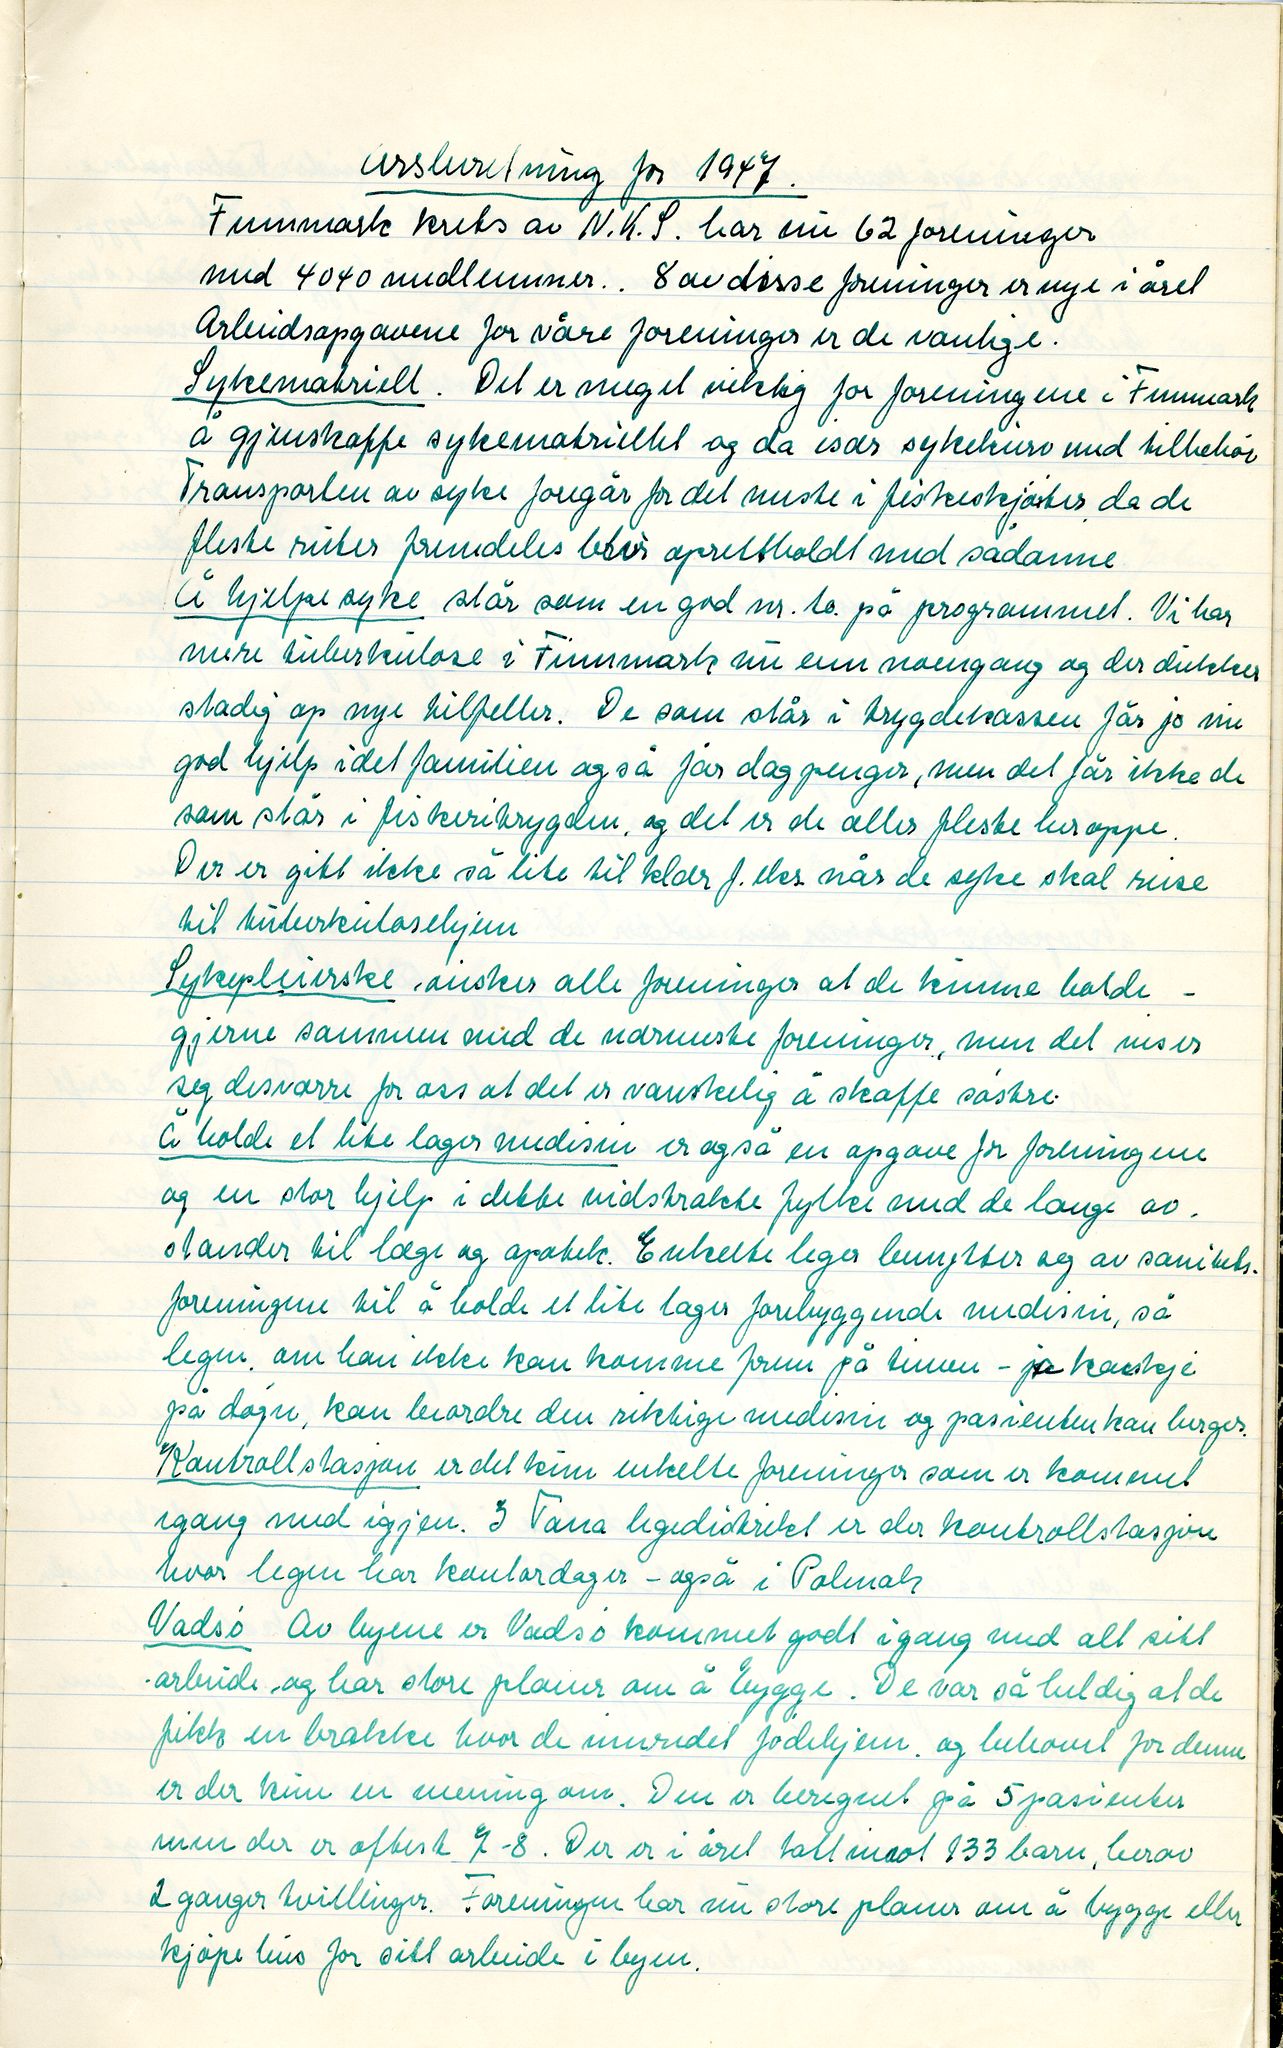 Årsberetning for 1947.
Finnmark krets av N.K.S. har nu 62 foreninger
med 4040 medlemmer.. 8 av disse foreninger er nye i året
Arbeidsopgavene for våre foreninger er de vanlige.
Sykematriell. Det er meget viktig for foreningene i Finnmark
å gjenskaffe sykematriellet og da især sykekurv med tilbehør
Transporten av syke foregår for det meste i fiskeskjøiter da de
fleste ruter fremdeles blir oprettholdt med sådanne
Å hjelpe syke står som en god nr. to. på programmet. Vi har
mere tuberkulose i Finnmark nu enn noengang og der dukker
stadig op nye tilfeller. De som står i trygdekassen får jo nu
god hjelp idet familien også får dagpenger, men det får ikke de
som står i fiskeritrygden, og det er de aller fleste heroppe.
Der er gitt ikke så lite til klær f. eks. når de syke skal reise
til tuberkulosehjem
Sykepleierske ønsker alle foreninger at de kunne holde -
gjerne sammen med de nærmeste foreninger, men det viser
seg desværre for oss at det er vanskelig å skaffe søstre.
Å holde et lite lager medisin er også en opgave for foreningene
og en stor hjelp i dette vidstrakte fylke med de lange av.
stander til læge og apotek. Enkelte leger benytter seg av sanitets-
foreningene til å holde et lite lager forebyggende medisin, så
legen, om han ikke kan komme frem på timen - ja kanskje
på døgn, kan beordre den riktige medisin og pasienten kan berges.
Kontrollstasjon er det kun enkelte foreninger som er kommet
igang med igjen. I Tana legedistrikt er der kontrollstasjon
hvor legen har kontordager - også i Polmak
Vadsø Av byene er Vadsø kommet godt igang med alt sitt
arbeide, og har store planer om å bygge. De var så heldig at de
fikk en brakke hvor de innredet fødehjem, og behovet for denne
er der kun en mening om. Den er beregnet på 5 pasienter
men der er oftest 7-8. Der er i året tatt imot 133 barn, herav
2 ganger tvillinger. Foreningen har nu store planer om å bygge eller
kjøpe hus for sitt arbeide i byen.